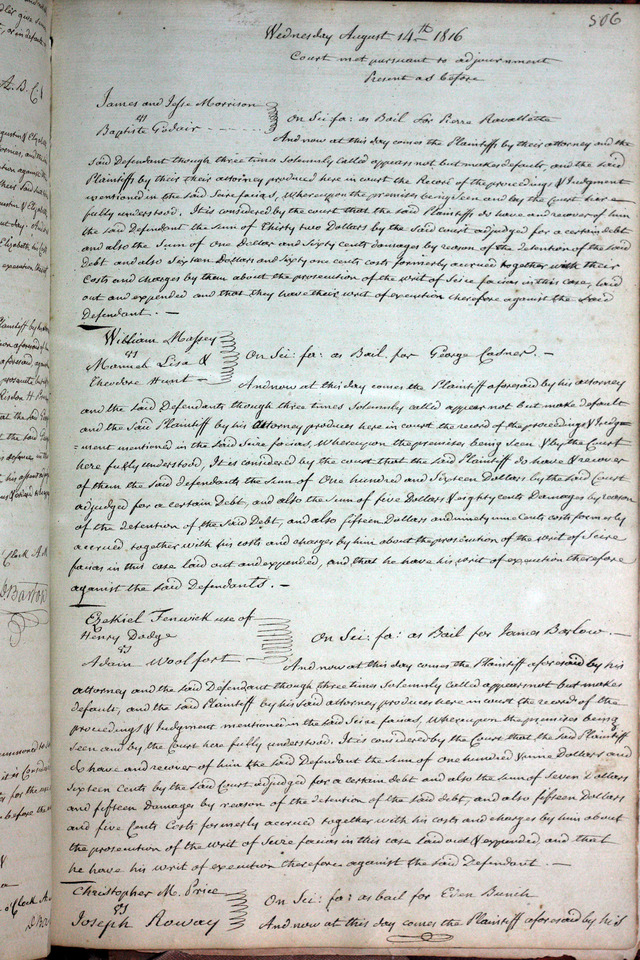 506
Wednesday August 14th 1816
Court met pursuant to adjournment
Present as before
James and Jesse Morrison
vs
Baptiste Godair
On Sci: fa: as Bail for Pierre Ravallette
And now at this day comes the Plaintiffs by their attorney and the
said Defendant though three times Solemnly called appears not but makes default, and the said
Plaintiffs by their their attorney produced here in court the Record of the proceedings & Judgment
mentioned in the said Scire facias, Whereupon the premises being seen and by the Court here
fully understood. It is considered by the court that the said Plaintiffs do have and recover of him
the said defendant the Sum of Thirty two Dollars by the said court adjudged for a certain debt
and also the Sum of One Dollar and Sixty Cents damages by reason of the detention of the said
debt and also Sixteen Dollars and Sixty one cents costs formerly accrued together with their
Costs and charges by them about the prosecution of the writ of Scire facias in this case, laid
out and expended and that they have their writ of execution therefore against the said
Defendant. —
William Massey
vs
Manuel Lisa &
Theodore Hunt —
On Sci: fa: as Bail. for George Casner. —
And now at this day comes the Plaintiff aforesaid by his attorney
and the said Defendants though three times Solemnly called appear not but make default
and the said Plaintiff by his Attorney produces here in court the record of the proceedings & Judg=
=ment mentioned in the said Scire facias, Whereupon the premises being seen & by the Court
here fully understood, It is considered by the court that the said Plaintiff do have & recover
of them the said defendants the Sum of One hundred and Sixteen Dollars by the said Court
adjudged for a certain Debt, and also the Sum of five Dollars & eighty cents Damages by reason
of the detention of the said Debt, and also fifteen Dollars and ninety nine Cents costs formerly
accrued, together with his costs and charges by him about the prosecution of the writ of Scire
facias in this case laid out and expended, and that he have his writ of execution therefore
against the said Defendants. —
Ezekiel Fenwick use of
Henry Dodge
vs
Adam Woolfort —
On Sci: fa: as Bail for James Barlow. —
And now at this day comes the Plaintiff aforesaid by his
attorney and the said Defendant though three times Solemnly called appears not but makes
default, and the said Plaintiff by his said attorney produces here in court the record of the
proceedings & Judgment mentioned in the said Scire facias, Whereupon the premises being
seen and by the Court here fully understood. It is considered by the Court that the said Plaintiff
do have and recover of him the said Defendant the Sum of one hundred & nine Dollars and
Sixteen Cents by the said Court adjudged for a certain debt and also the Sum of Seven Dollars
and fifteen damages by reason of the detention of the said debt, and also fifteen Dollars
and five Cents Costs formerly accrued together with his costs and charges by him about
the prosecution of the writ of Scire facias in this case laid out & expended, and that
he have his writ of execution therefore against the said Defendant. —
Christopher M. Price
vs
Joseph Roway
On Sci: fa: as bail for Eden Bunch
And now at this day comes the Plaintiff aforesaid by his